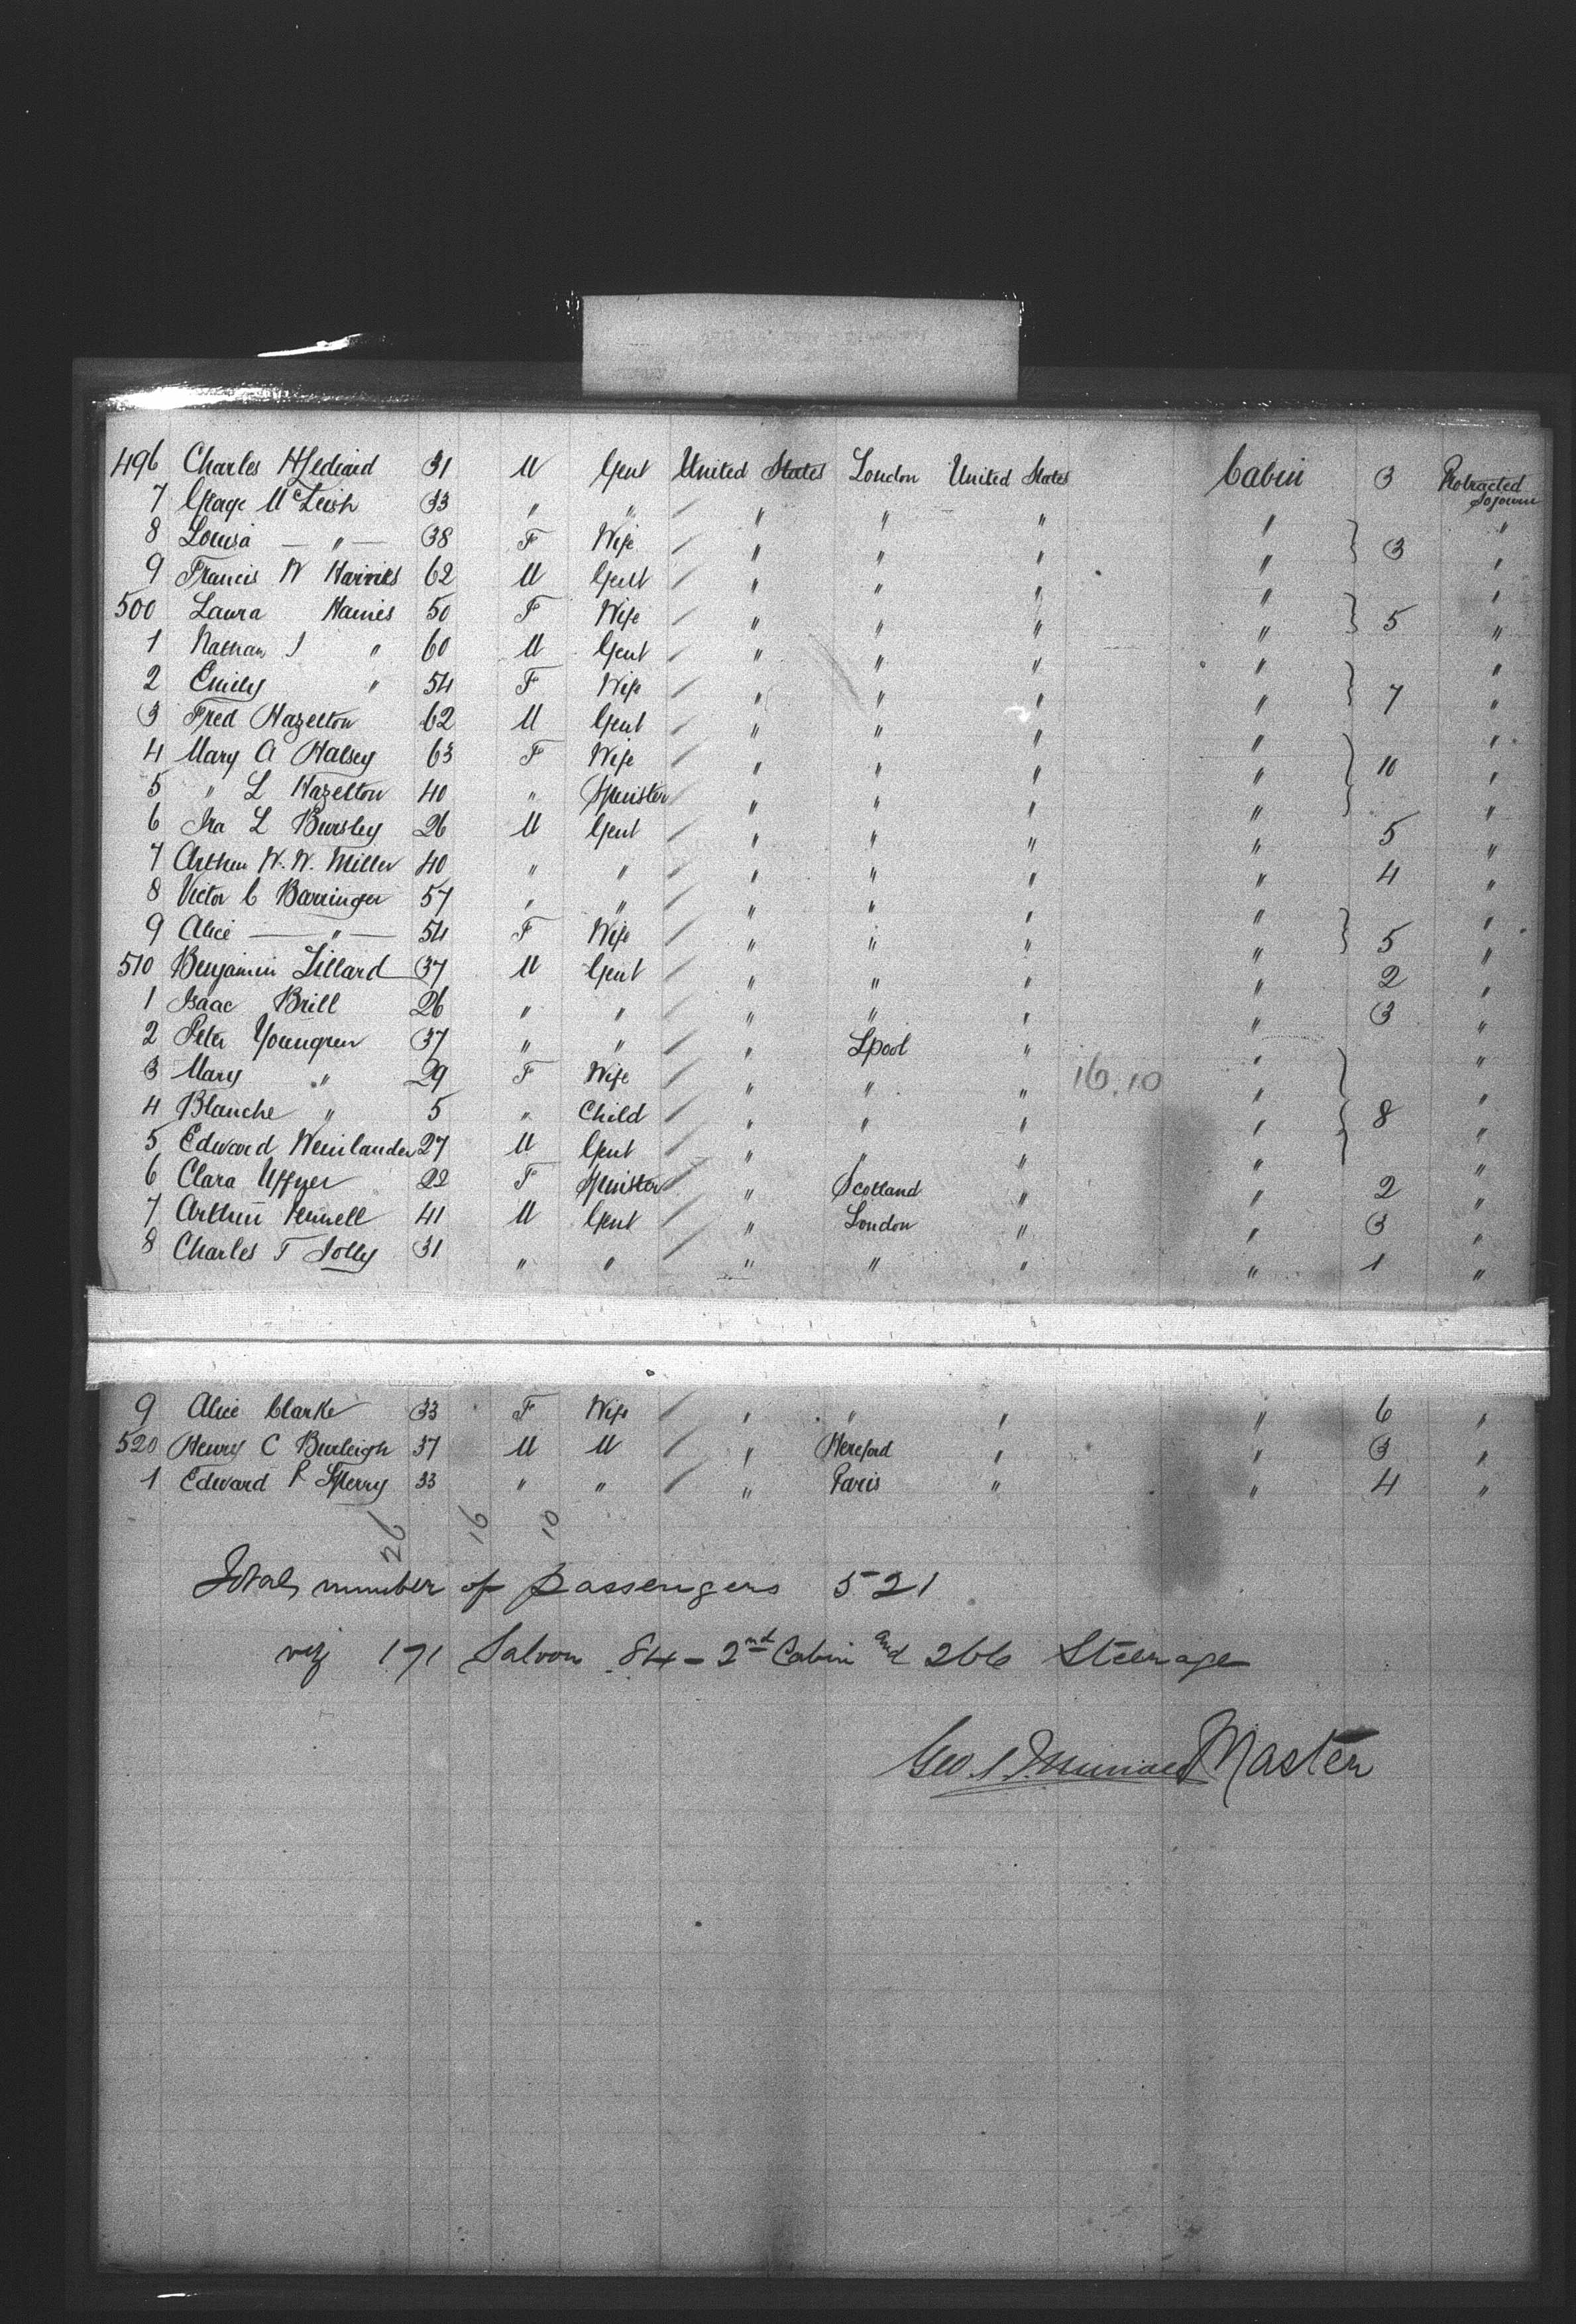 496 Charles H Lediard 31 M Gent United States London United States Cabin 3 Protracted Sojourn
7 George McLeish 33 " " " " " " "
8 Louisa — " — 38 F Wife " " " " 3 "
9 Francis W Haines 62 M Gent " " " " "
500 Laura Haines 50 F Wife " " " " 5 "
1 Nathan J " 60 M Gent " " " " "
2 Emily " 54 F Wife " " " " 7 "
3 Fred Hazelton 62 M Gent " " " " "
4 Mary A Halsey 63 F Wife " " " " 10 "
5 " L Hazelton 40 " Spinster " " " " "
6 Ira L Bursley 26 M Gent " " " " 5 "
7 Arthur W. W. Miller 40 " " " " " " 4 "
8 Victor C Barringer 57 " " " " " " "
9 Alice — " — 54 F Wife " " " " 5 "
510 Benjamin Lillard 37 M Gent " " " " 2 "
1 Isaac Brill 26 " " " " " " 3 "
2 Peter Youngren 37 " " " Lpool " " "
3 Mary " 29 F Wife " " " 16.10 " "
4 Blanche " 5 " Child " " " " 8 "
5 Edward Weinlander 27 M Gent " " " " "
6 Clara Uffner 22 F Spinster " Scotland " " 2 "
7 Arthur Pennell 41 M Gent " London " " 3 "
8 Charles T Jolly 31 " " " " " " 1 "
9 Alice Clarke 33 F Wife " " " " 6 "
520 Henry C Burleigh 37 M M " Hereford " " 3 "
1 Edward P Sperry 33 " " " Paris " " 4 "
26 16 10
Total number of passengers 521
viz 171 Saloon 84 - 2nd Cabin and 266 Steerage
Geo. Master